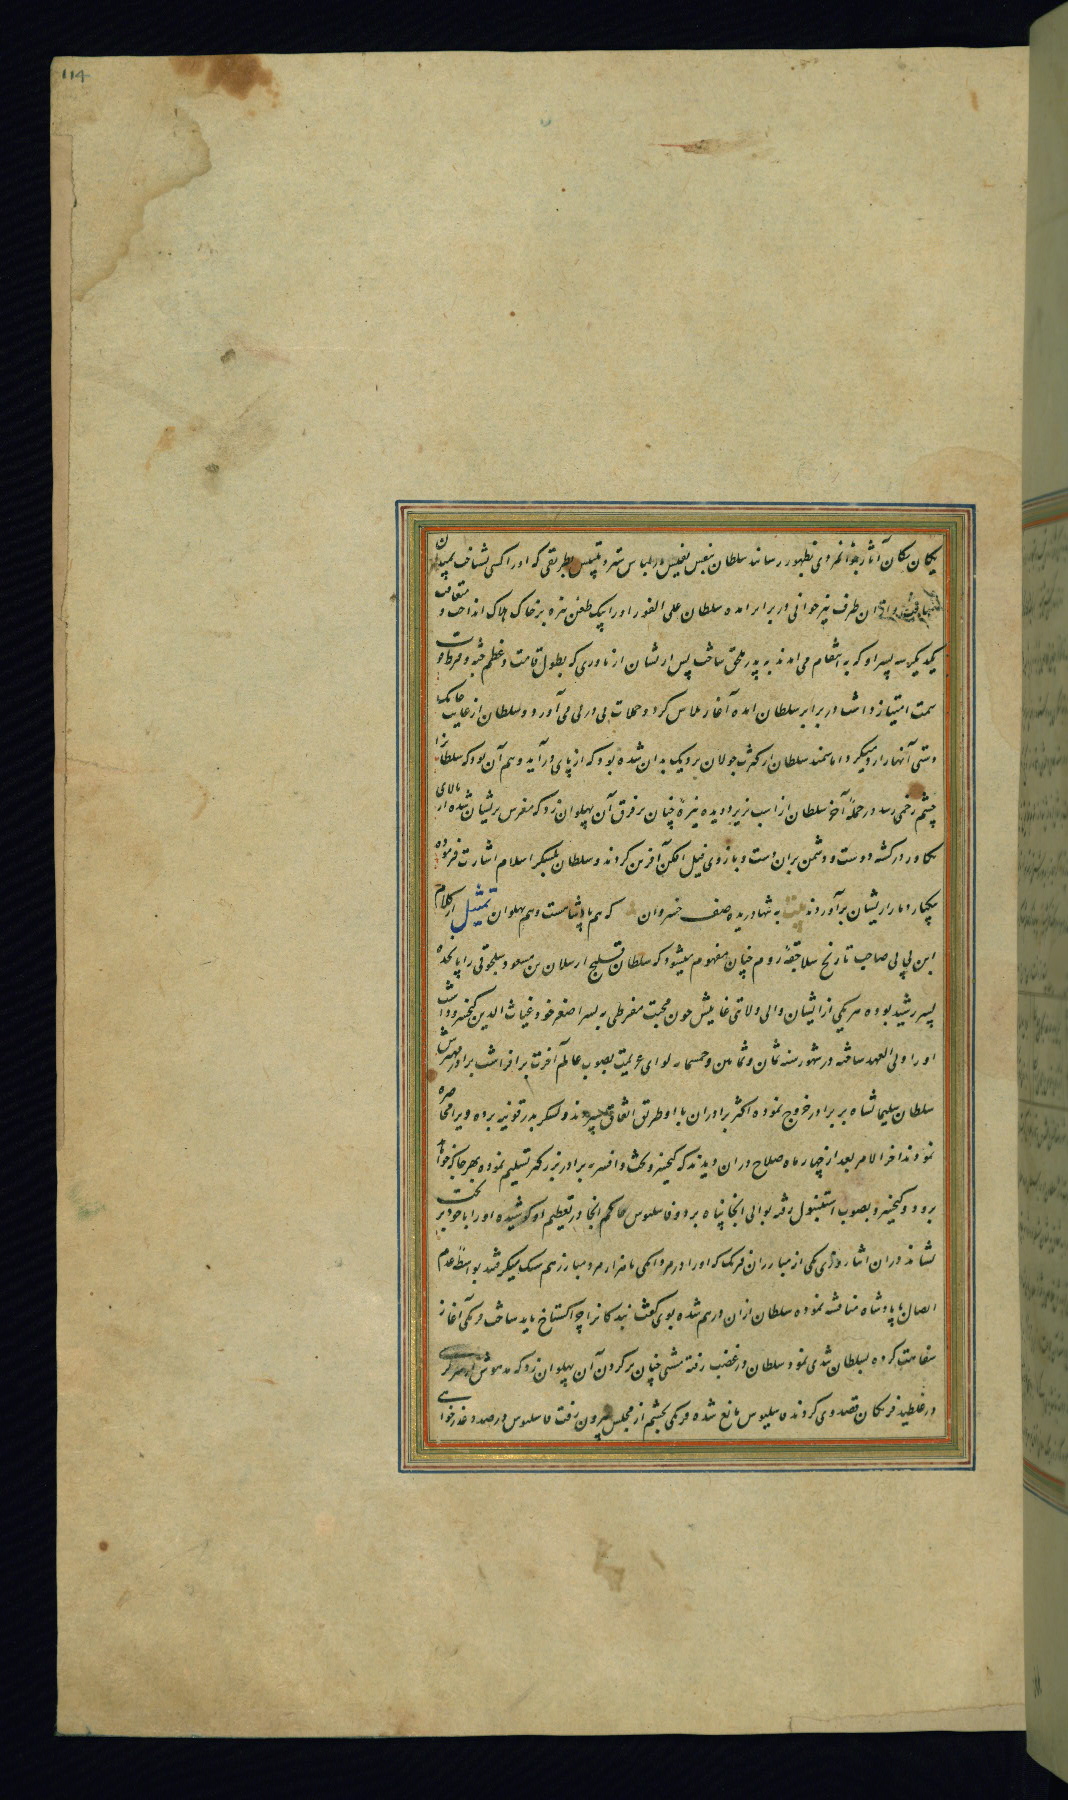 114
یکان یکان آثار جوانمردی بظهور رسانند سلطان بنفس نفیس در لباس ستر و تلبیس بطریقی که او را کسی نشناخت بمیدان
ازان طرف نیز جوانی در برابر آمده سلطان علی الفور او را بیک طعن نیزه بر خاک هلاک انداخت و متعاقب
یکدیگر سه پسر او که به انتقام می آمدند به پدر ملحق ساخت پس از ایشان از ناوری که بطول قامت و عظم جثه و فرط قوت
سمت امتیاز داشت در برابر سلطان آمده آغاز تلاش کرد و حملات پی در پی می آورد و سلطان از غایت چابک
دستی آنها را رد میکرد اما سمند سلطان از کثرت جولان نزدیک بدان شده بود که از پای درآید و بیم آن بود که سلطانرا
چشم زخمی رسد در حمله آخر سلطان از اسب بزیر دویده نیزه چنان بر فرق آن پهلوان زد که مغزش پریشان شده از بالای
تکاور در گشته دوست و دشمن بران دست و بازوی فیل افکن آفرین کردند و سلطان بلشکر اسلام اشارت فرموده
بیکبار دمار از ایشان برآوردند بیت به تنها دریده صف خسروان که هم پادشاهست و هم پهلوان تمثیل از کلام
ابن بی بی صاحب تاریخ سلاجقه روم چنان مفهوم میشود که سلطان قلیج ارسلان بن مسعود سلجوقی را یازده
پسر رشید بوده هر یکی از ایشان والی ولایتی غایتش چون محبت مفرطی به پسر اصغر خود غیاث الدین کیخسرو داشت
او را ولی العهد ساخته در شهور سنه ثمان و ثمانین و خمسمایه لوای عزیمت بصوب عالم آخرت برافراشت برادر مهترش
سلطان سلیمانشاه بر برادر خروج نموده اکثر برادران با او طریق اتفاق سپردند و لشکر بدر قونیه برده ویرا محاصره
نمودند آخر الامر بعد از چهار ماه صلاح دران دیدند که کیخسرو تخت و افسر به برادر بزرگتر تسلیم نموده بهر جا که خواهد
برود و کیخسرو بصوب استنبول رفته بوالی آنجا پناه برد و فاسلیوس حاکم آنجا در تعظیم او کوشیده او را با خود بر تخت
نشاند دران اثنا روزی یکی از مبارزان فرنگ که او را در مردانگی با هزار مرد مبارز هم سنگ میگرفتند بواسطه عدم
ایصال با پادشاه مناقشه نموده سلطان ازان درهم شده بوی گفت بندگانرا چرا گستاخ باید ساخت فرنگی آغاز
سفاهت کرده بسلطان تندی نمود سلطان در غضب رفته مشتی چنان بر گردن آن پهلوان زد که مدهوش از سر کرسی
در غلطید فرنگان قصد وی کردند فاسلیوس مانع شده فرنگی بخشم از مجلس بیرون رفت فاسلیوس در صدد عذرخواهی